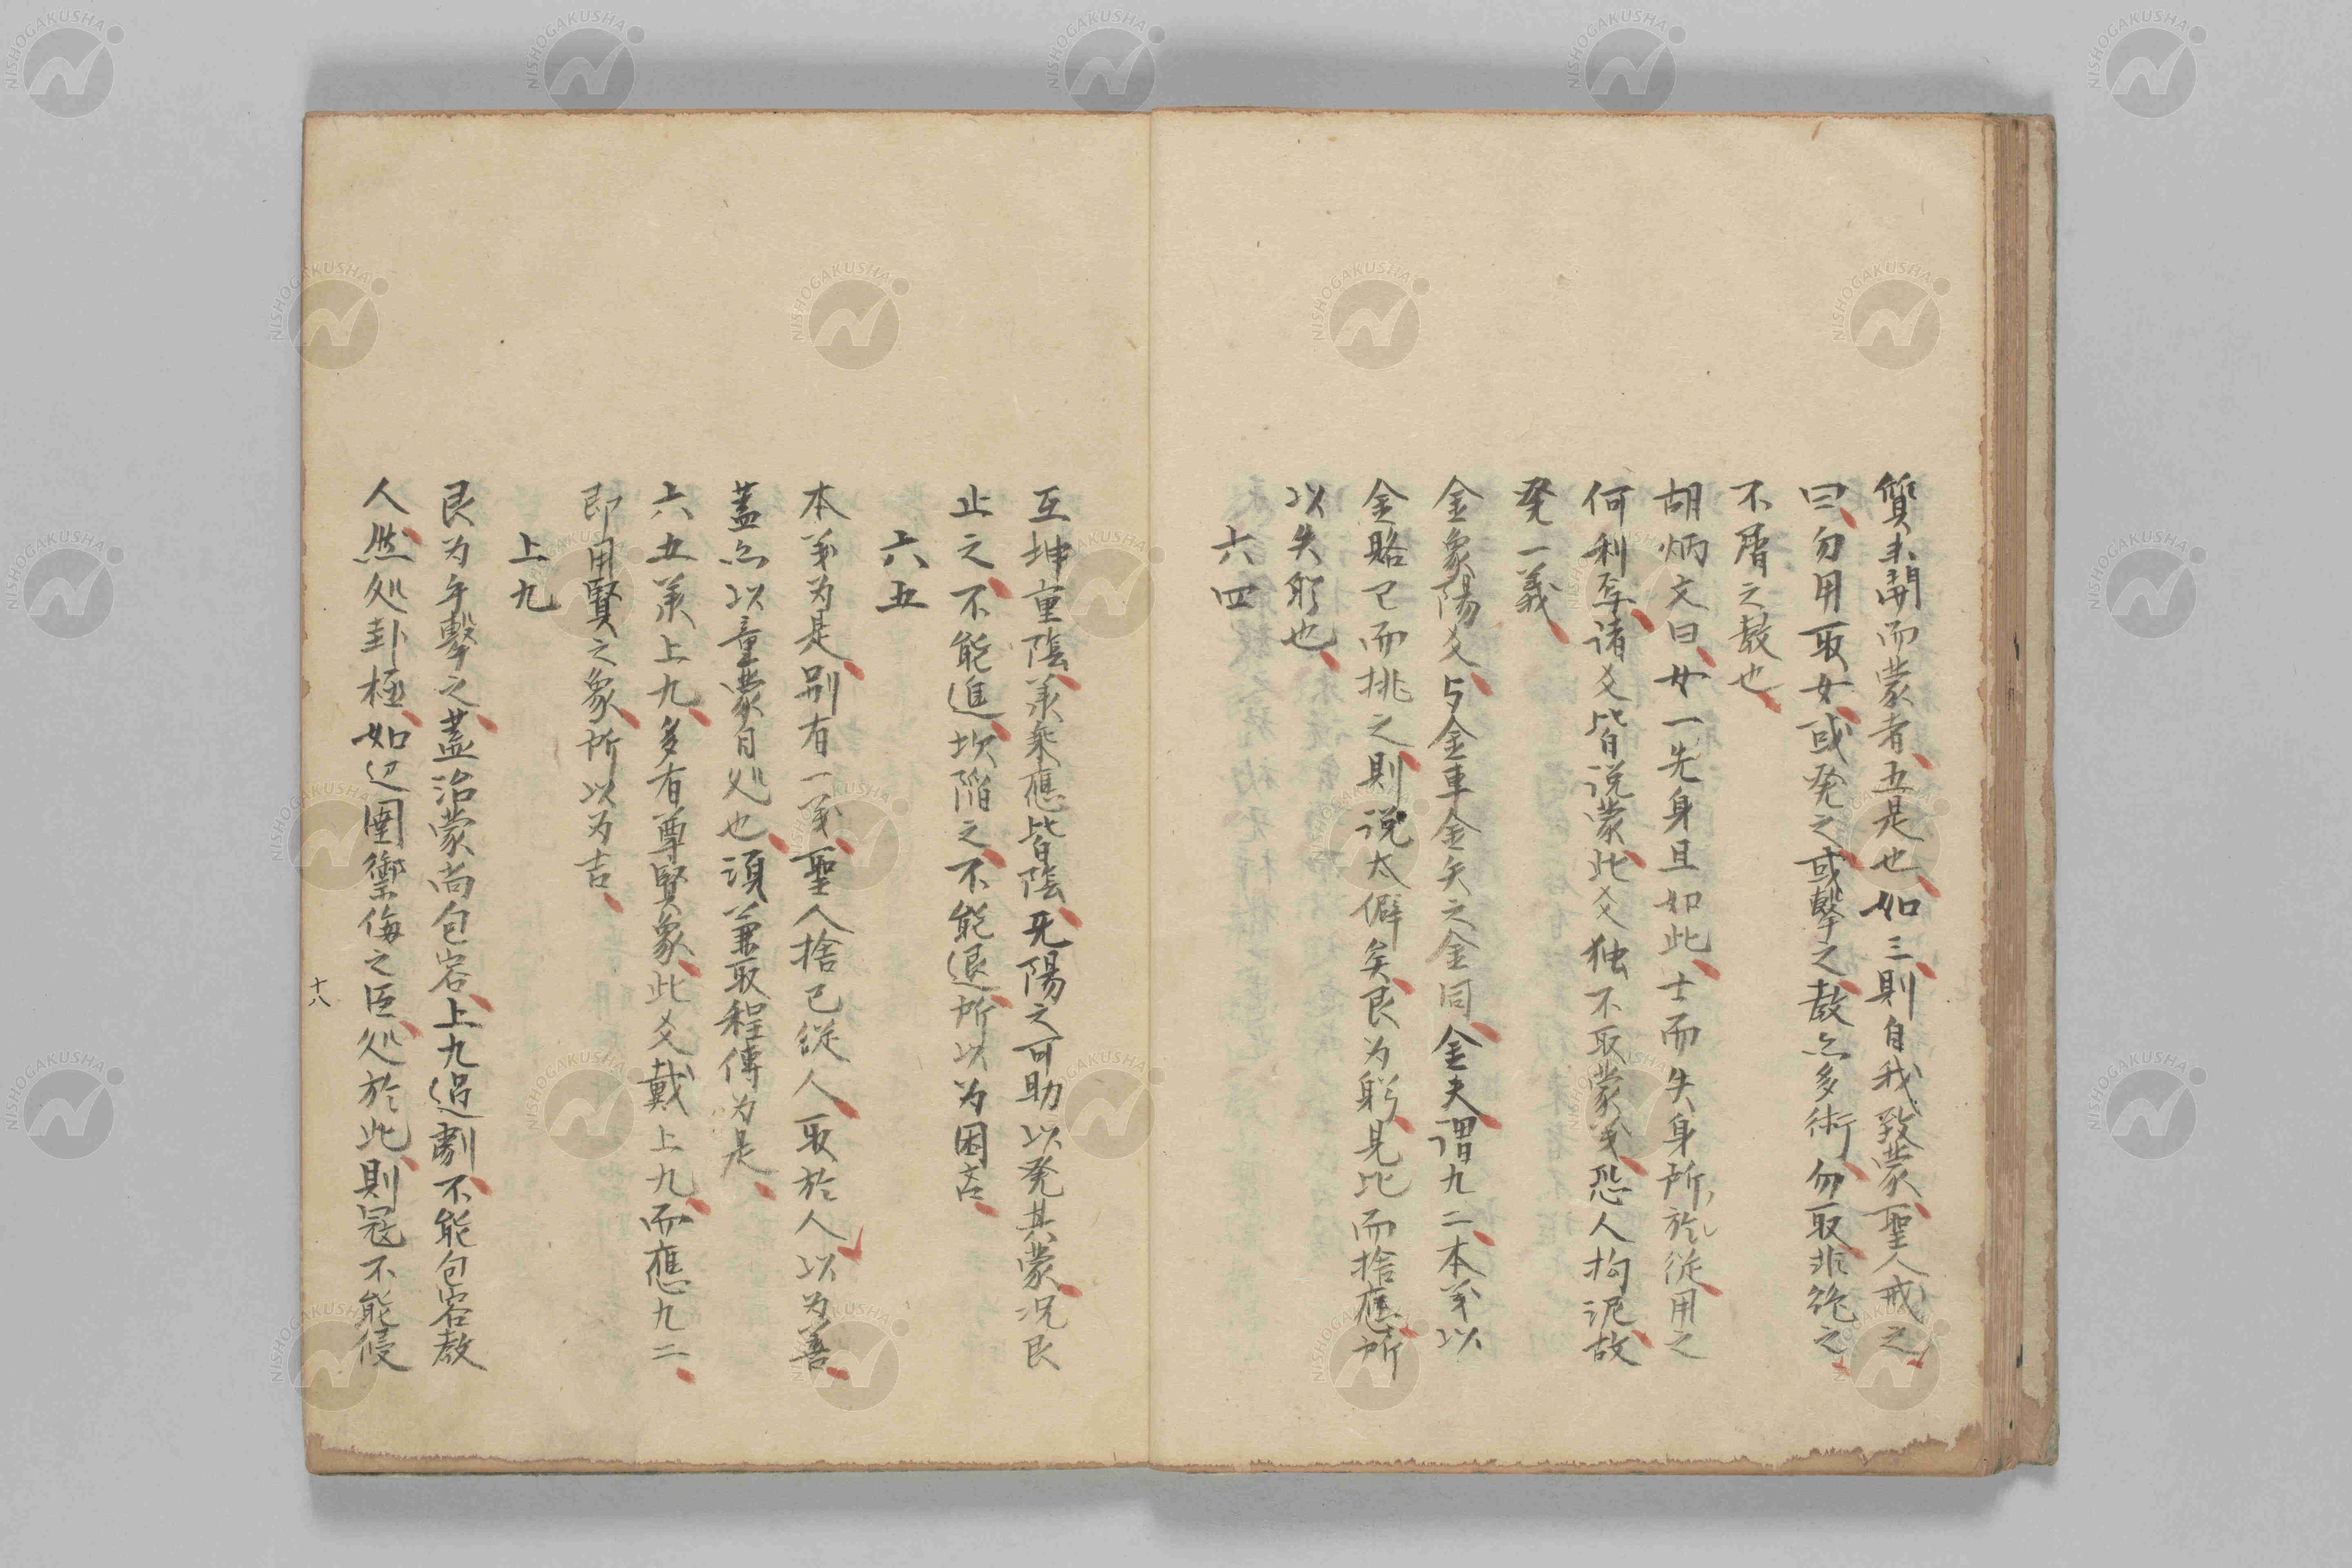 質未開而蒙者五是也如三則自我致蒙聖人戒之
曰勿用取女或発之或擊之敎亦多術勿取非絶之
不屑之敎也
胡炳文曰女一先身且如此士而失身所於従用之
何利存諸爻皆説蒙此爻独不取蒙義恐人拘泥故
発一義
金象陽爻与金車金矢之金同金夫謂九二本義以
金賂己而挑之則説太僻矣艮为躬見比而捨應所
以失躬也
六四
互坤重陰承乘應皆陰旡陽之可助以発其蒙况艮
止之不能進坎陥之不能退所以为困吝
六五
本義为是别有一義聖人捨己従人取於人以为善
蓋亦以童蒙自处也須兼取程傳为是
六五承上九多有尊賢象此爻戴上九而應九二
即用賢之象所以为吉
上九
艮为手擊之蓋治蒙尚包容上九過劇不能包容敎
人然処卦極如辺圉禦侮之臣処於此則冦不能侵
十八
NISHOGAKUSHA